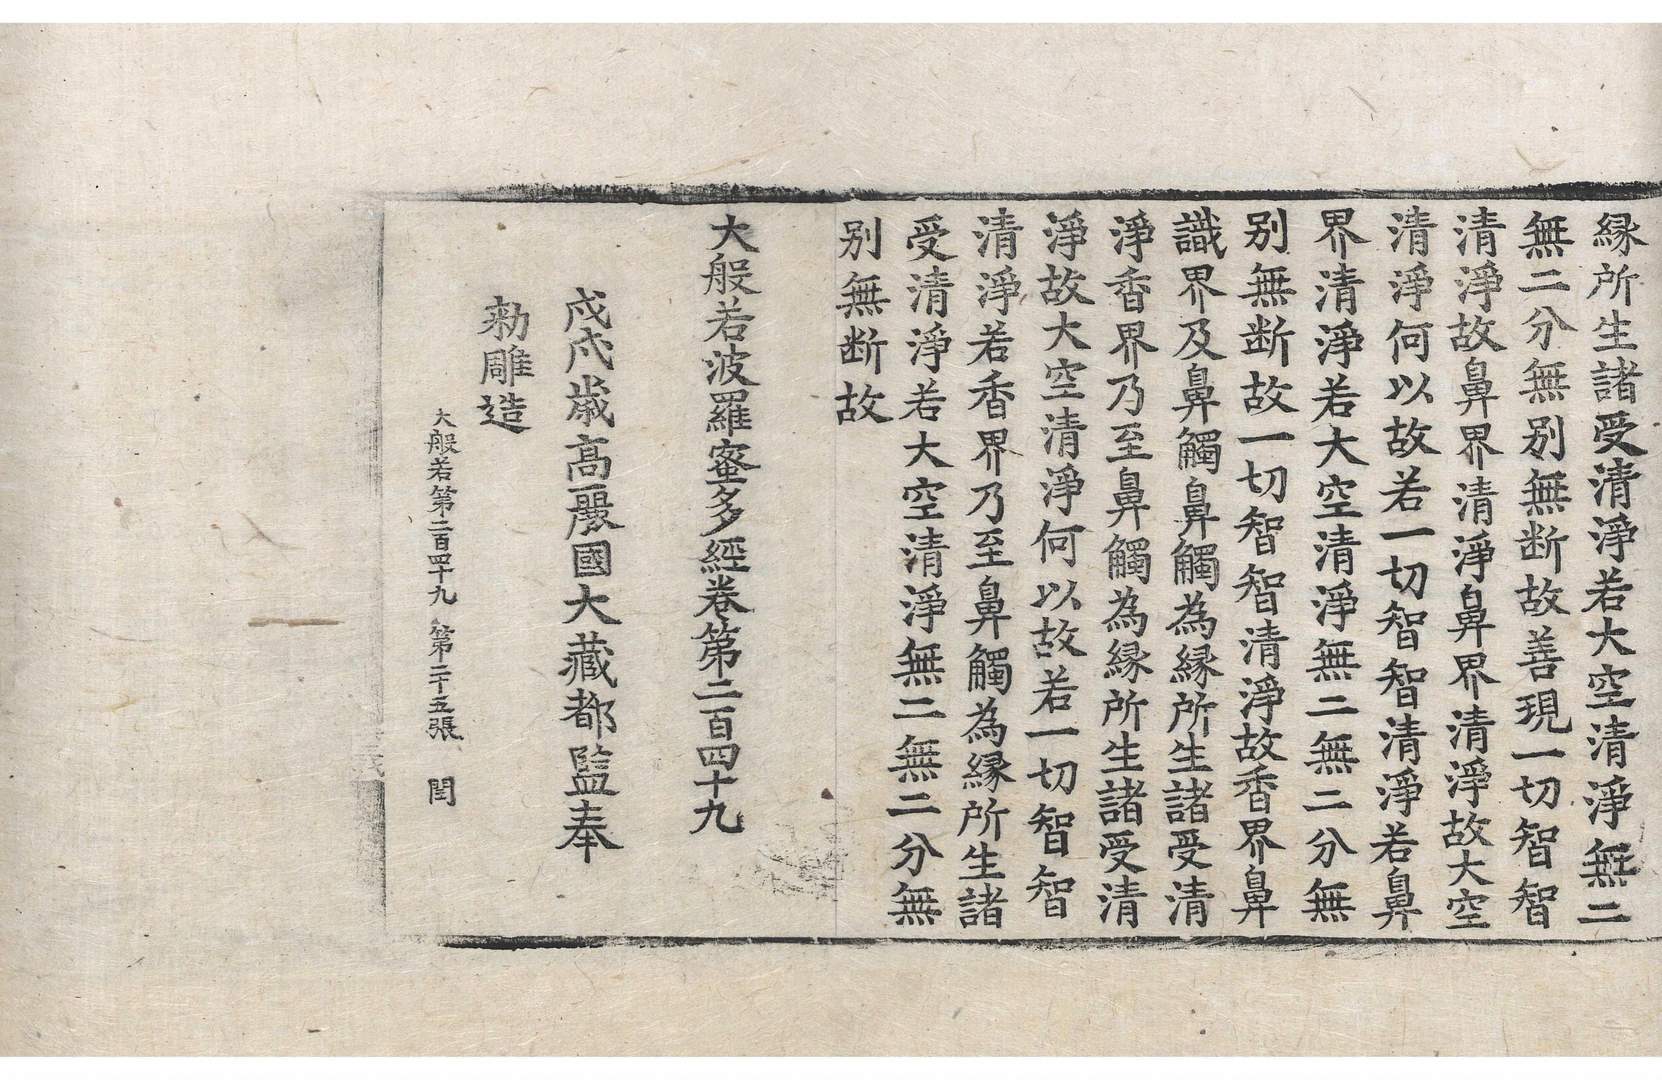 緣所生諸受清淨若大空清淨無二
無二分無別無斷故善現一切智智
清淨故鼻界清淨鼻界清淨故大空
清淨何以故若一切智智清淨若鼻
界清淨若大空清淨無二無二分無
別無斷故一切智智清淨故香界鼻
識界及鼻觸鼻觸為緣所生諸受清
淨香界乃至鼻觸為緣所生諸受清
淨故大空清淨何以故若一切智智
清淨若香界乃至鼻觸為緣所生諸
受清淨若大空清淨無二無二分無
別無斷故
大般若波羅蜜多經卷第二百四十九
戊戌歲高麗國大藏都監奉
勑雕造
大般若第二百四十九 第二十五張 閏